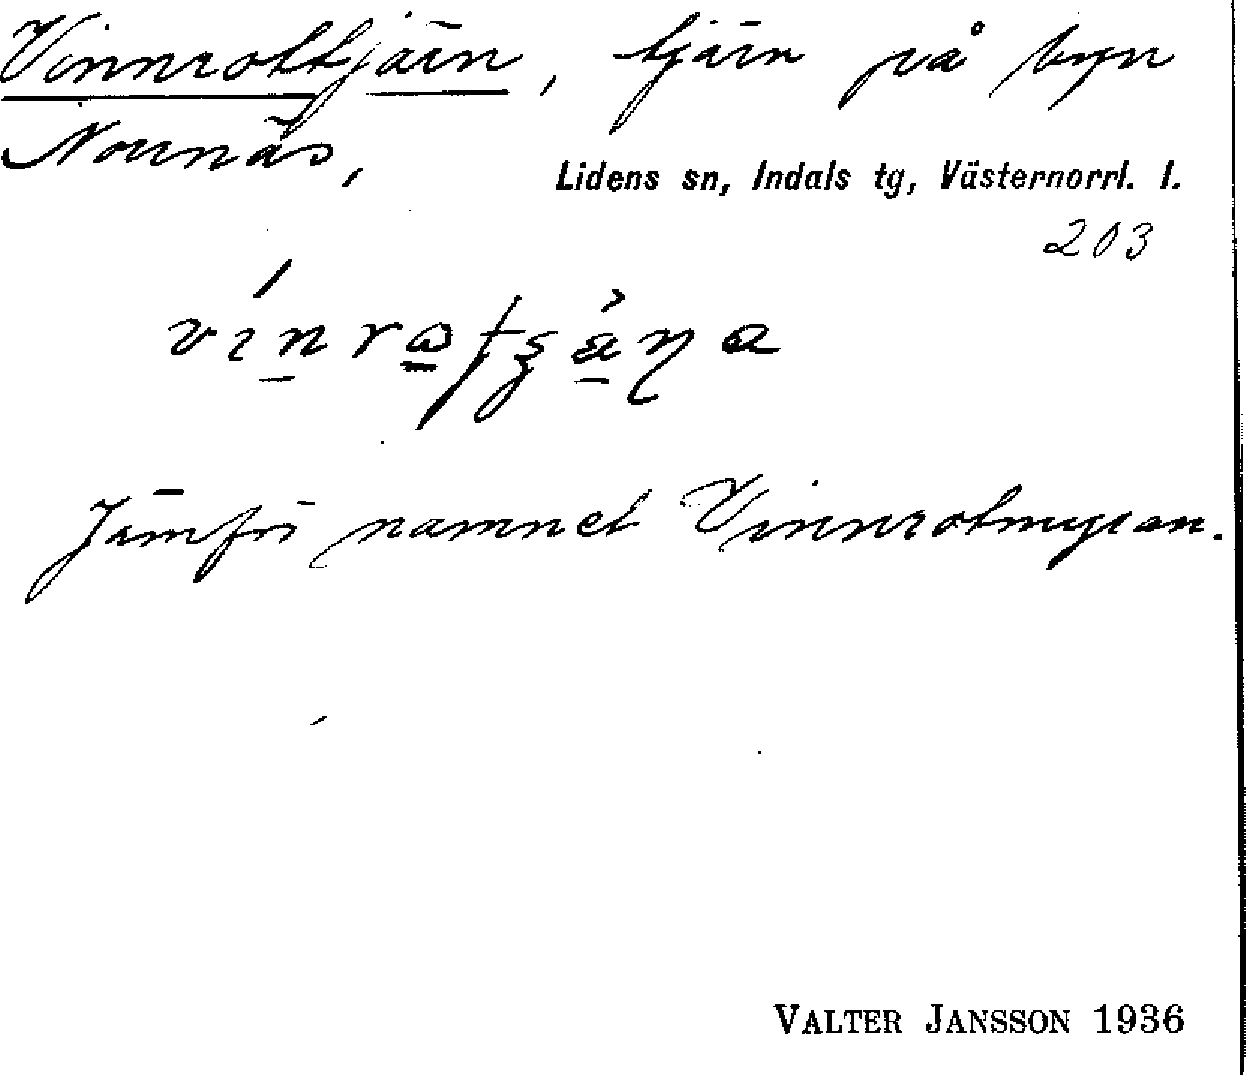 Vinnrottjärn, tjärn på byn
Nornäs,
Lidens sn, Indals tg, Västernorrl. l.
203
Jämför namnet Vinnrotmyran.
VALTER JANSSON 1936